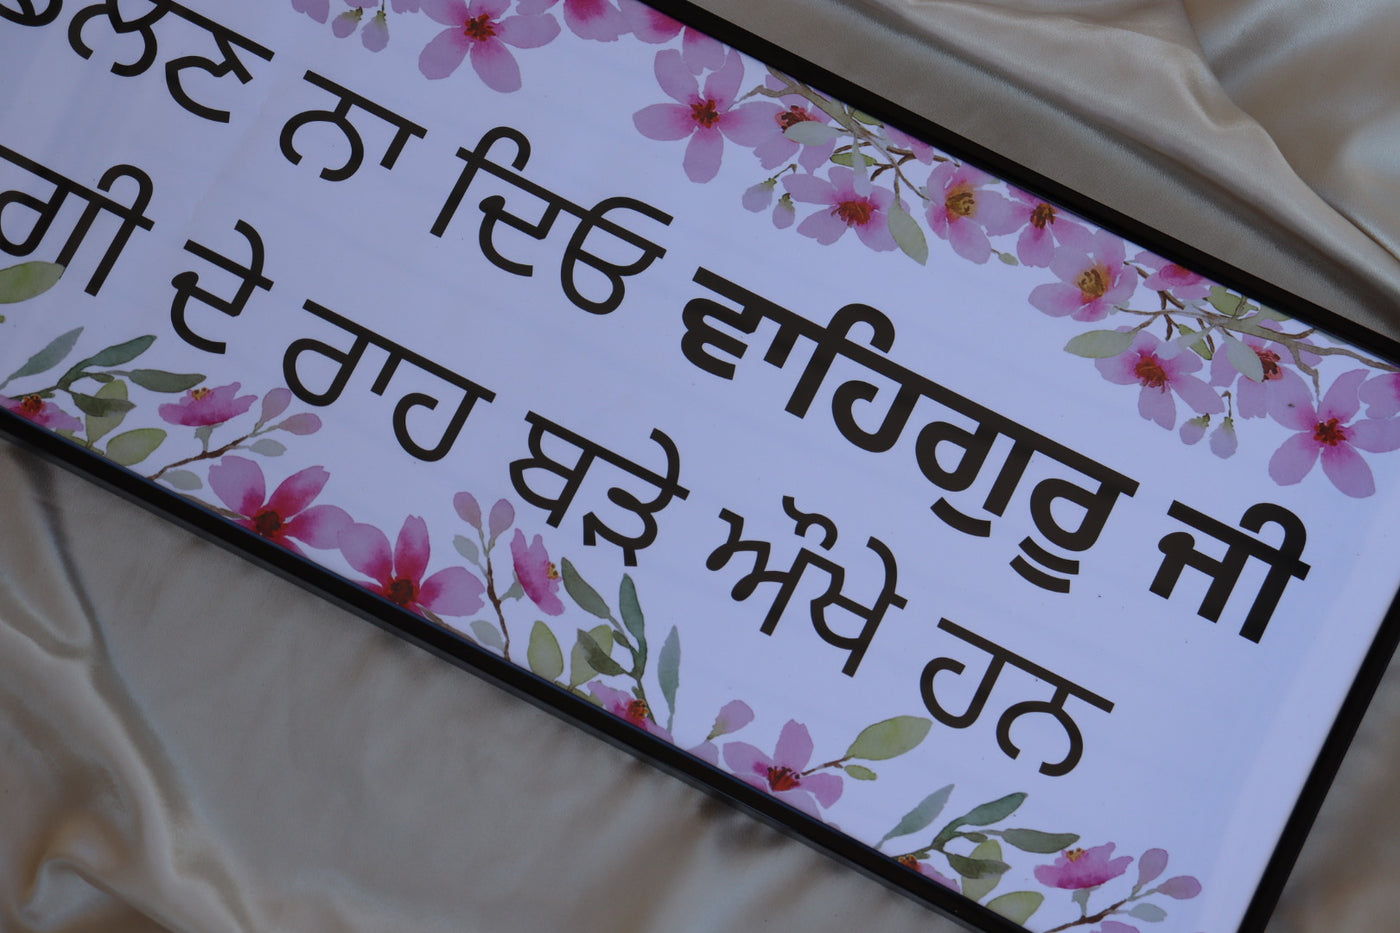 ਡੋਲਣ ਨਾ ਦਿਓ ਵਾਹਿਗੁਰੂ ਜੀ
ਦੇ ਰਾਹ ਬੜੇ ਔਖੇ ਹਨ